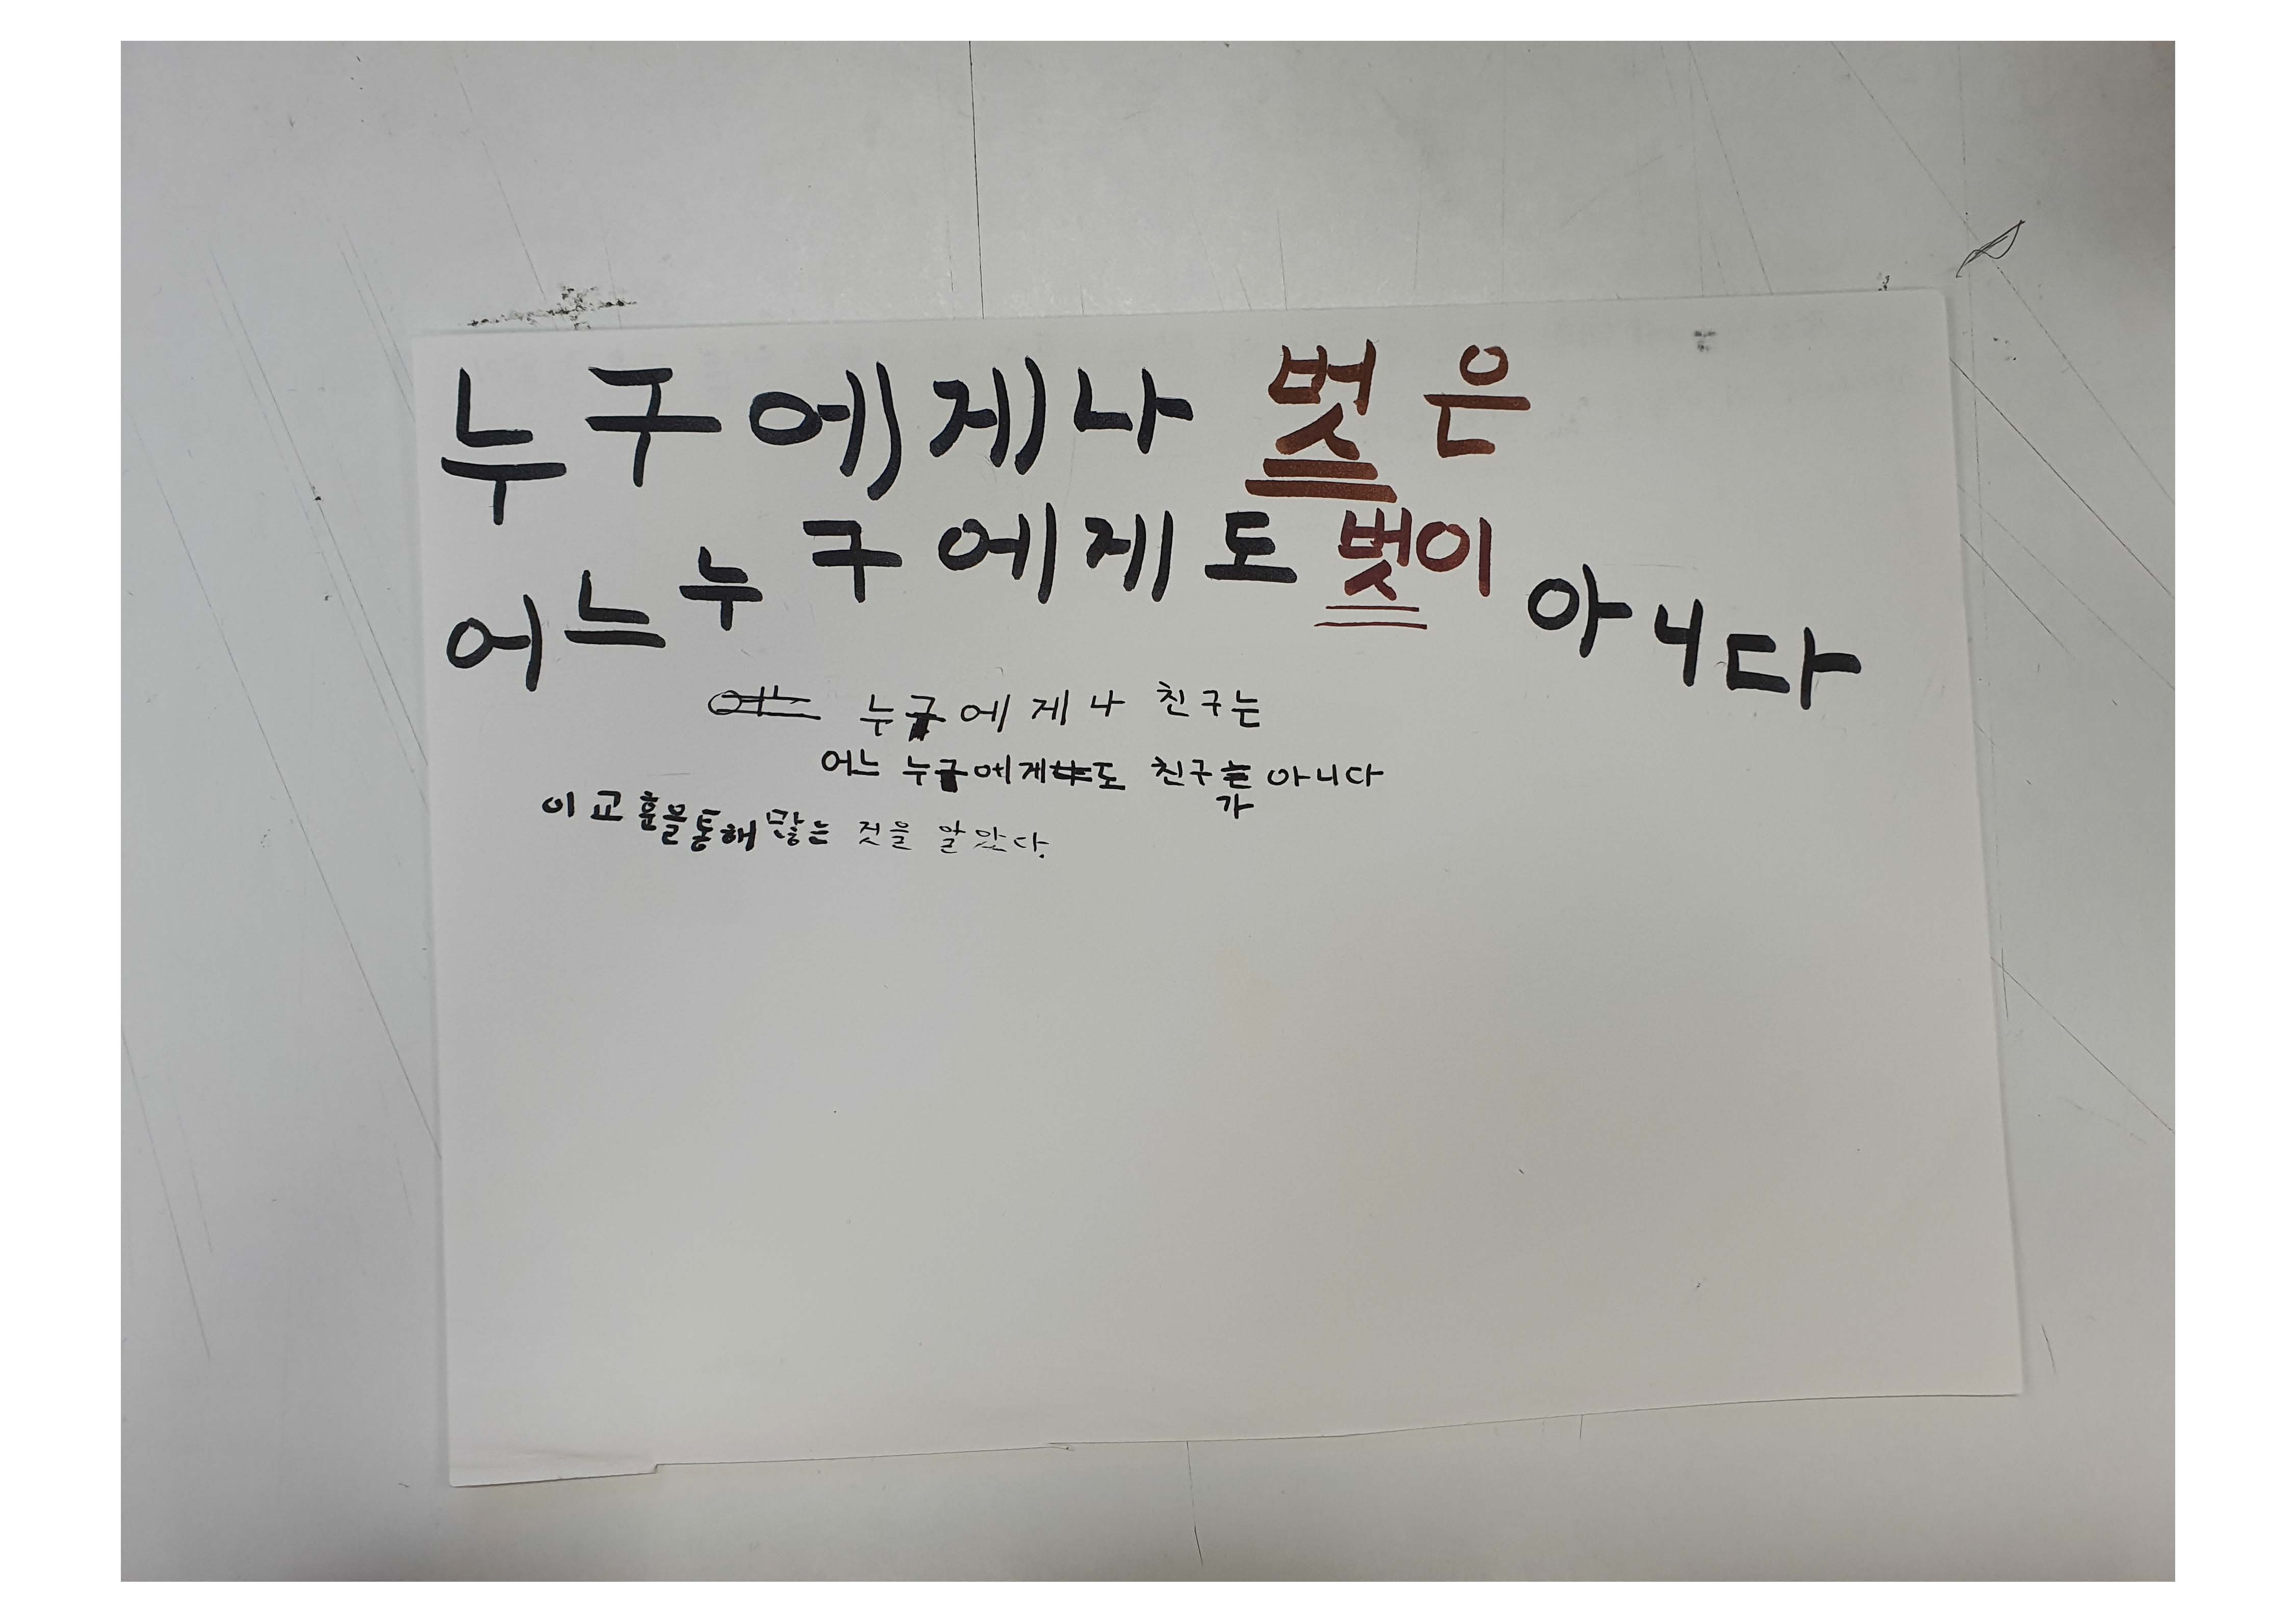 누구에게나 벗은
어느누구에게도 벗이 아니다
누구에게나 친구는
어느 누구에게도 친구가 아니다
이 교훈을 통해 많는 것을 알았다.